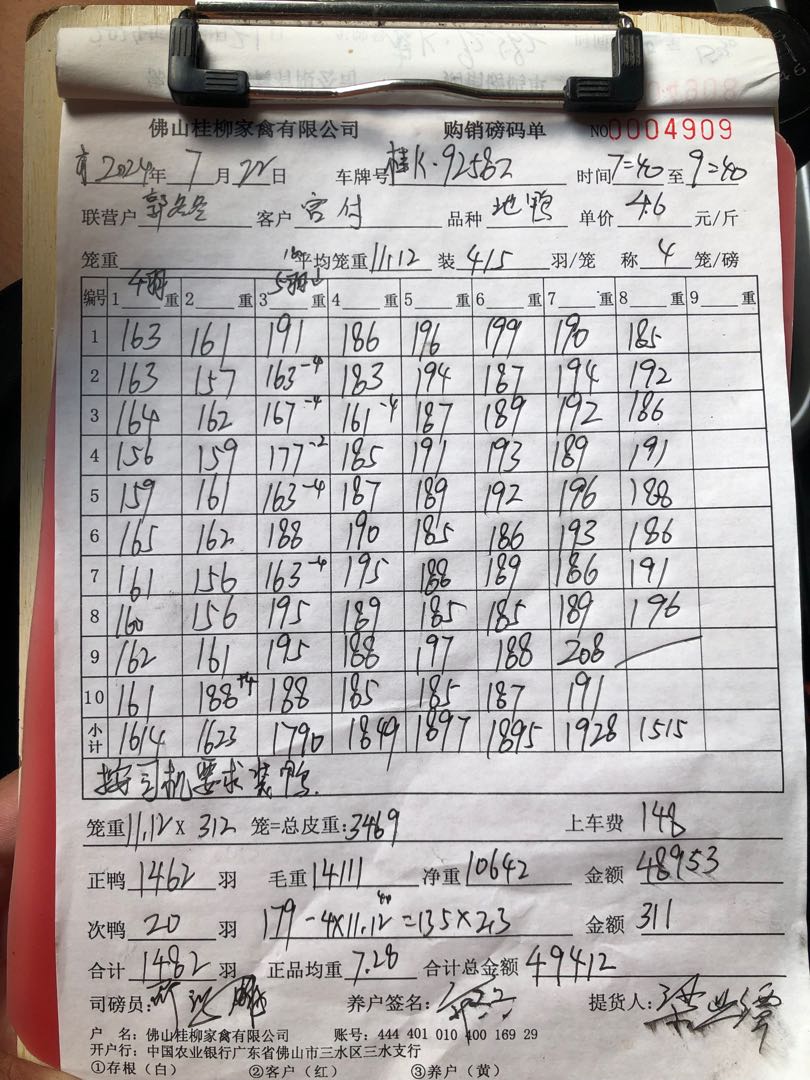 佛山桂柳家禽有限公司 购销磅码单 NO 0004909
2024年 7月 22日 车牌号 桂K·92582 时间 7=40 至 9=40
联营户 客户 宫付 品种 地鸭 单价 4.6 元/斤
笼重 平均笼重 11.12 装 4/5 羽/笼 称 4 笼/磅
4羽 5羽
编号 1 重 2 重 3 重 4 重 5 重 6 重 7 重 8 重 9 重
1 163 161 191 186 196 199 190 185
2 163 157 163-4 183 194 187 194 192
3 164 162 167-4 161-4 187 189 192 186
4 156 159 177-2 185 191 193 189 191
5 159 161 163-4 187 189 192 196 188
6 165 162 188 190 185 186 193 186
7 161 156 163-4 195 188 189 186 191
8 160 156 195 189 185 185 189 196
9 162 161 195 188 197 188 208
10 161 188+4 188 185 185 187 191
小计 1614 1623 1790 1849 1897 1895 1928 1515
按司机要求装鸭.
笼重 11.12 X 312 笼=总皮重: 3469 上车费 148
正鸭 1462 羽 毛重 14111 净重 10642 金额 48953
次鸭 20 羽 179-4×11.12=135×2.3 金额 311
合计 1482 羽 正品均重 7.28 合计总金额 49412
司磅员: 养户签名: 提货人:
户 名: 佛山桂柳家禽有限公司 账号: 444 401 010 400 169 29
开户行: 中国农业银行广东省佛山市三水区三水支行
①存根(白) ②客户(红) ③养户(黄)